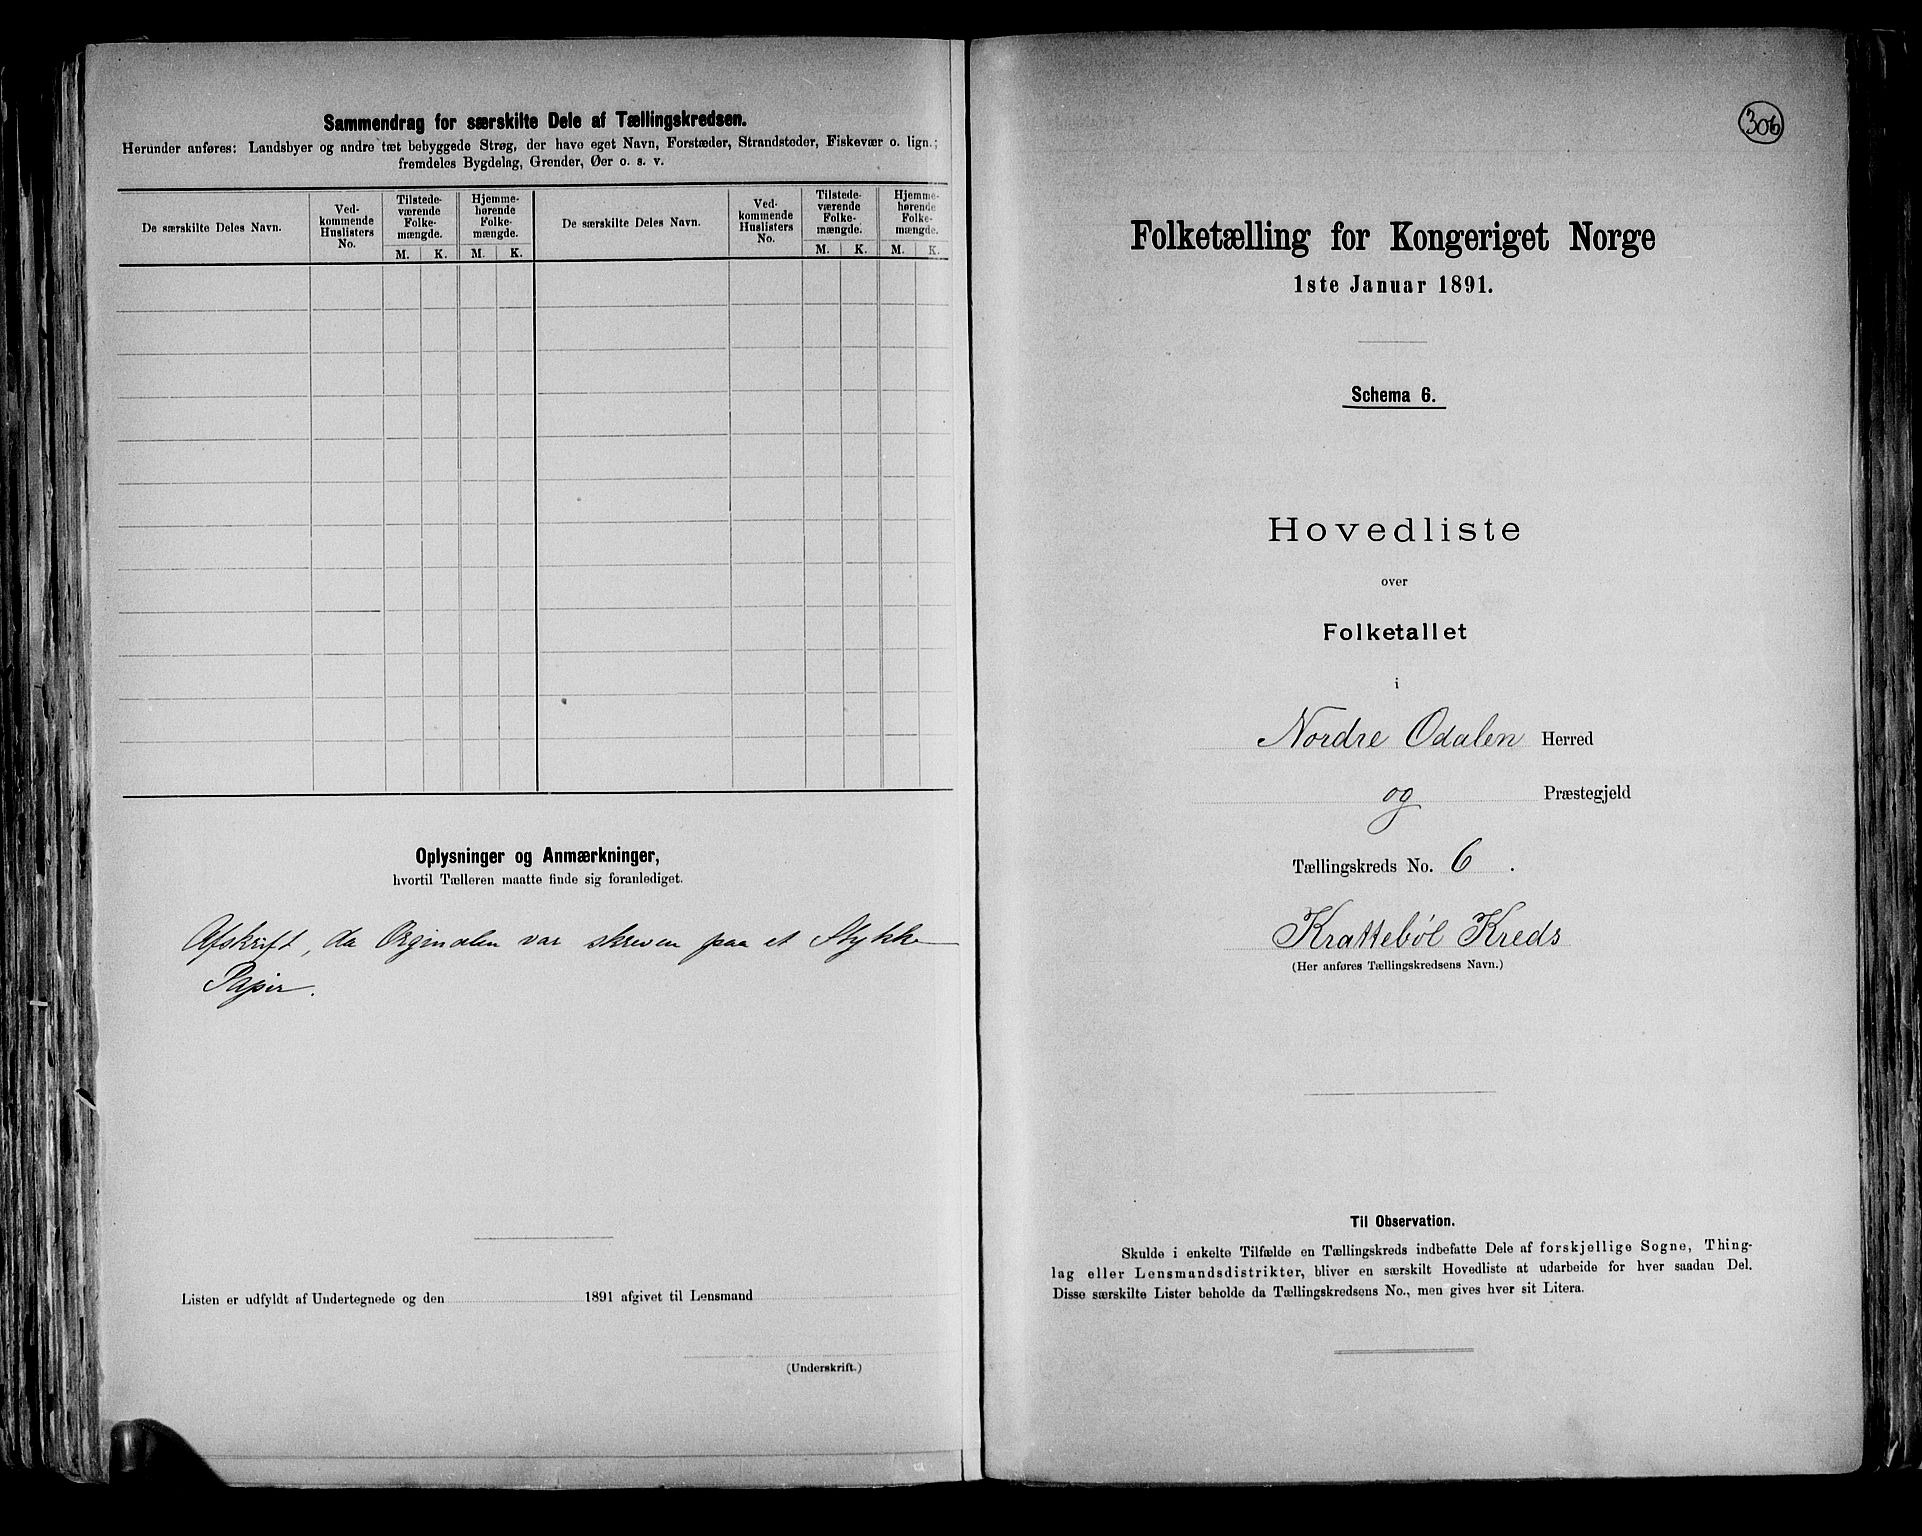 Sammendrag for særskilte Dele af Tællingskredsen.
Herunder anføres: Landsbyer og andre tæt bebyggede Strøg, der have eget Navn, Forstæder, Strandsteder, Fiskevær o. lign.;
fremdeles Bygdelag, Grender, Øer o. s. v.
De særskilte Deles Navn.
Ved-
kommende
Huslisters
No.
Tilstede-
værende
Folke-
mængde.
Hjemme-
hørende
Folke-
mængde.
De særskilte Deles Navn.
Ved-
kommende
Huslisters
No.
Tilstede-
værende
Folke-
mængde.
Hjemme-
hørende
Folke-
mængde.
M. K. M. K. M. K. M. K.
Oplysninger og Anmærkninger,
hvortil Tælleren maatte finde sig foranlediget.
Afskrift, da Orginalen var skreven paa et Stykke
Papir.
Listen er udfyldt af Undertegnede og den 1891 afgivet til Lensmand
(Underskrift.)
306
Folketælling for Kongeriget Norge
1ste Januar 1891.
Schema 6.
Hovedliste
over
Folketallet
i
Nordre Odalen Herred
og Præstegjeld
Tællingskreds No. 6.
Krattebøl Kreds
(Her anføres Tællingskredsens Navn.)
Til Observation.
Skulde i enkelte Tilfælde en Tællingskreds indbefatte Dele af forskjellige Sogne, Thing-
lag eller Lensmandsdistrikter, bliver en særskilt Hovedliste at udarbeide for hver saadan Del.
Disse særskilte Lister beholde da Tællingskredsens No., men gives hver sit Litera.